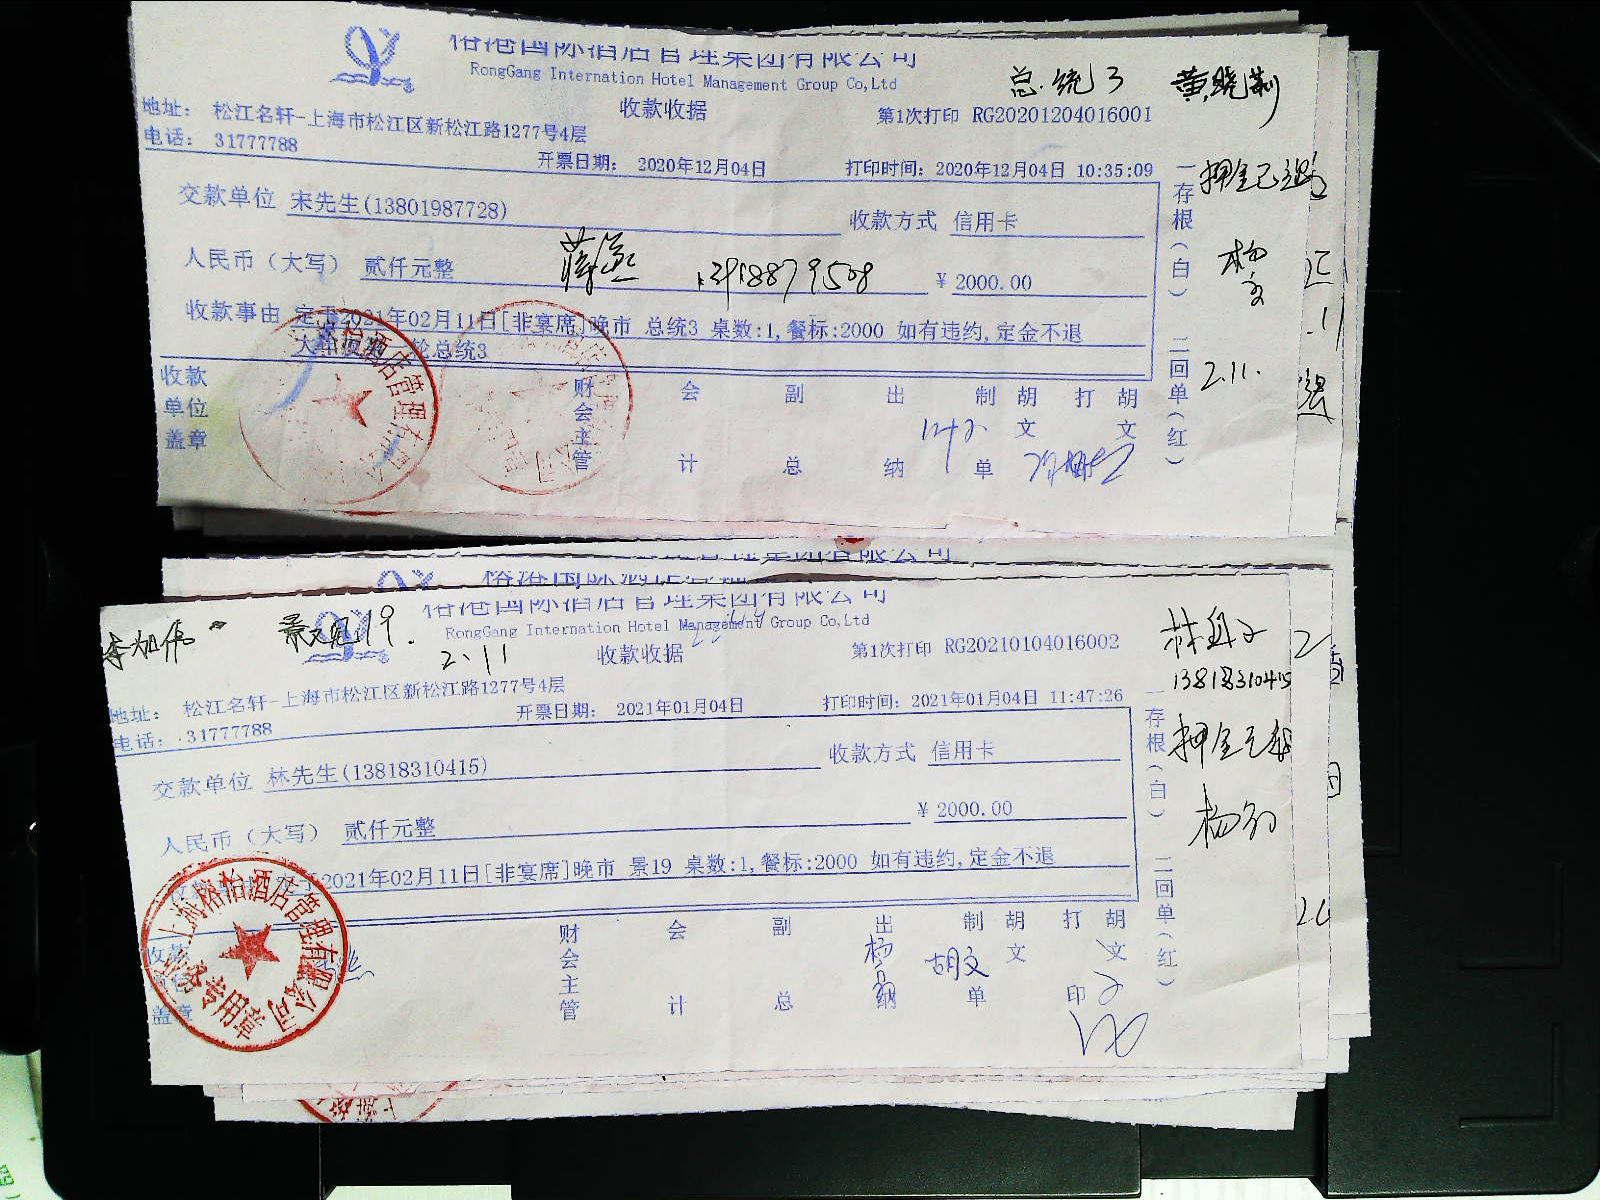 榕港国际酒店管理集团有限公司
RongGang Internation Hotel Management Group Co,Ltd
总统3
收款收据
第1次打印 RG20201204016001
地址: 松江名轩-上海市松江区新松江路1277号4层
电话: 31777788
开票日期: 2020年12月04日
打印时间: 2020年12月04日 10:35:09
交款单位 宋先生(13801987728)
收款方式 信用卡
人民币(大写) 贰仟元整
¥ 2000.00
收款事由 定于2021年02月11日[非宴席]晚市 总统3 桌数:1,餐标:2000 如有违约,定金不退
轮总统3
收款单位盖章
财会主管
会计
副总
出纳
制单
胡文
打
胡文
一存根(白) 二回单(红)
押金已退
2.11.
管理集团有限公司
榕港国际酒店管理
榕港国际酒店管理集团有限公司
RongGang Internation Hotel Management Group Co,Ltd
19.
2.11
收款收据
第1次打印 RG20210104016002
地址: 松江名轩-上海市松江区新松江路1277号4层
电话: 31777788
开票日期: 2021年01月04日
打印时间: 2021年01月04日 11:47:26
13818310415
交款单位 林先生(13818310415)
收款方式 信用卡
人民币(大写) 贰仟元整
¥ 2000.00
2021年02月11日[非宴席]晚市 景19 桌数:1,餐标:2000 如有违约,定金不退
上海榕怡酒店管理有限公司
业务专用章
盖章
财会主管
会计
副总
出纳
制单
胡文
打印
胡文
胡文
一存根(白) 二回单(红)